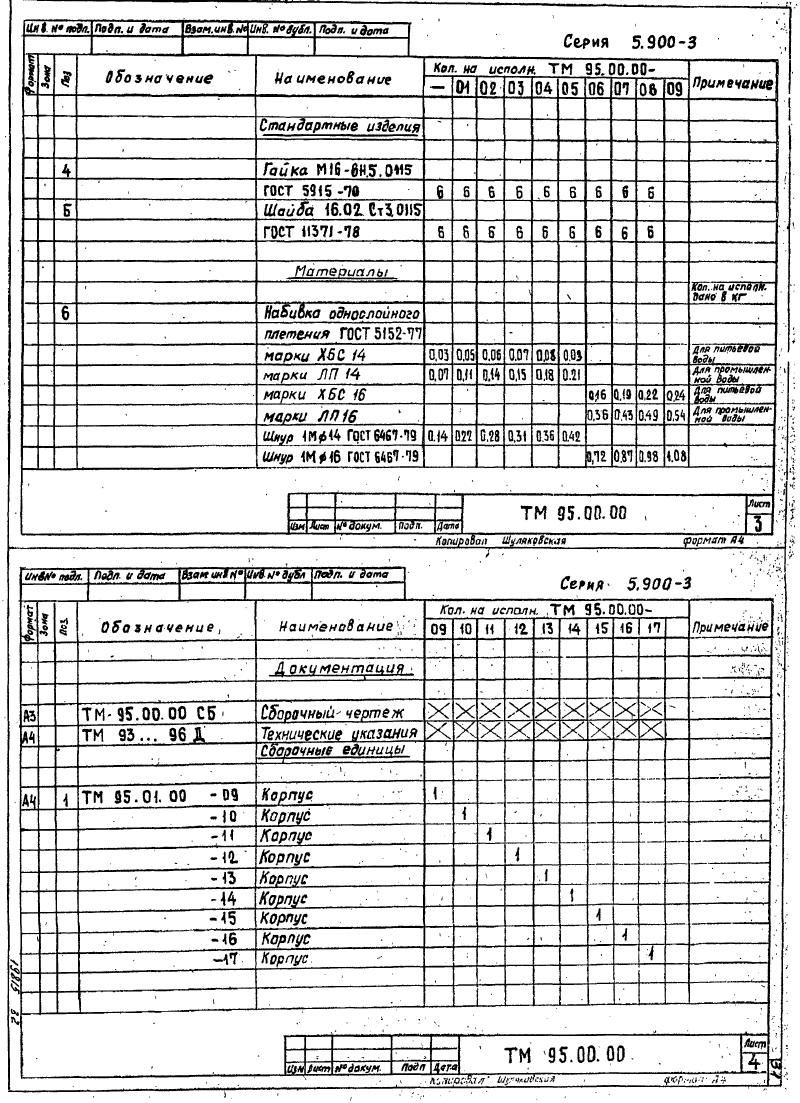 Инв. № подл. Подп. и дата Взам. инв. № Инв. № дубл. Подп. и дата
Серия 5.900-3
Формат Зона Поз. Обозначение Наименование Кол. на исполн. ТМ 95.00.00- Примечание
— 01 02 03 04 05 06 07 08 09
Стандартные изделия
4 Гайка М16-6Н.5.0115
ГОСТ 5915-70 6 6 6 6 6 6 6 6 6
5 Шайба 16.02 Ст3.0115
ГОСТ 11371-78 6 6 6 6 6 6 6 6 6
Материалы
Кол. на исполн.
дано в кг
6 Набивка однослойного
плетения ГОСТ 5152-77
марки ХБС 14 0,03 0,05 0,06 0,07 0,08 0,09 Для питьевой воды
марки ЛП 14 0,07 0,11 0,14 0,15 0,18 0.21 Для промышленной воды
марки ХБС 16 0,16 0,19 0,22 0,24 Для питьевой воды
марки ЛП 16 0,36 0,43 0,49 0,54 Для промышленной воды
Шнур 1М ø14 ГОСТ 6467-79 0.14 0.22 0.28 0.31 0.36 0.42
Шнур 1М ø16 ГОСТ 6467-79 0,72 0,87 0,98 1,08
ТМ 95.00.00 Лист 3
Изм Лист № докум. Подп. Дата
Копировал Шуляковская формат А4
Инв № подл. Подп. и дата Взам инв № Инв. № дубл Подп. и дата
Серия 5.900-3
Формат Зона Поз. Обозначение Наименование Кол. на исполн. ТМ 95.00.00- Примечание
09 10 11 12 13 14 15 16 17
Документация
А3 ТМ-95.00.00 СБ Сборочный чертеж
А4 ТМ 93...96 Д Технические указания
Сборочные единицы
А4 1 ТМ 95.01.00 -09 Корпус 1
-10 Корпус 1
-11 Корпус 1
-12 Корпус 1
-13 Корпус 1
-14 Корпус 1
-15 Корпус 1
-16 Корпус 1
-17 Корпус 1
ТМ 95.00.00 Лист 4
Изм Лист № докум. Подп Дата
Копировал Шуляковская формат А4